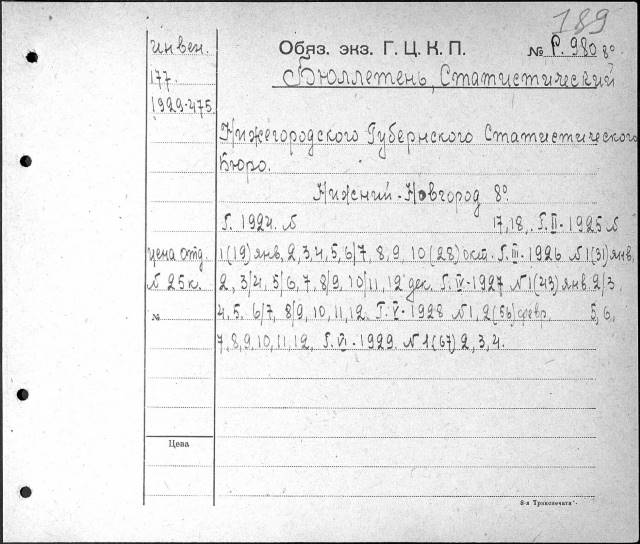 189
Инвен. Обяз. экз. Г. Ц. К. П. № Р. 980 8°
177. Бюллетень, Статистический
1929-475
Нижегородского Губернского Статистического
Бюро.
Нижний-Новгород 8°.
Г. 1924. № 17, 18, Г. II - 1925 №
цена отд. 1(19) янв, 2, 3, 4, 5, 6/7, 8, 9, 10(28) окт. Г. III - 1926 №1(31) янв,
№ 25к. 2, 3/4, 5/6, 7, 8/9, 10/11, 12 дек. Г. IV - 1927 №1(43) янв. 2/3
№ 4. 5. 6/7, 8/9, 10, 11, 12. Г. V - 1928 №1, 2(56) февр. 5, 6,
7, 8, 9, 10, 11, 12, Г. VI - 1929. №1(67) 2, 3, 4.
Цена
8-я Транспечати".